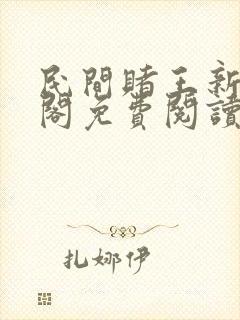 民間賭王新
閣免費閱讀
扎娜伊